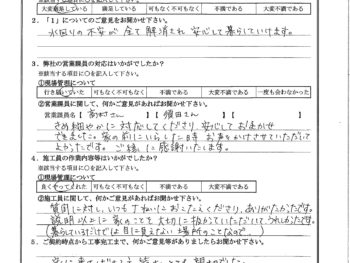 大変満足している 満足している 可もなく不可もなく 不満である 大変不満である
2. 「1」についてのご意見をお聞かせ下さい。
水回りの不安が全て解消され安心して暮らしています。
3. 弊社の営業課員の対応はいかがでしたか？
※該当する項目に○を記入して下さい。
①現場管理について
行き届いていた 可もなく不可もなく 不満である 大変不満である 一度も会わなかった
②営業課員に関して、何かご意見があればお聞かせ下さい。
営業課員名【 高村さん 】【 濱田さん 】
きめ細やかに対応してくださり、安心しておまかせ
できました。家の前にいらした時、お声をかけさせていただいて
よかったです。ご縁に感謝いたします。
4. 施工員の作業内容等はいかがでしたか？
※該当する項目に○を記入して下さい。
①現場管理について
良くやってくれた 可もなく不可もなく 不満である 大変不満である
②施工員に関して、何かご意見があればお聞かせ下さい。
質問に対し、いつも丁ねいにおこたえくださり、ありがたかったです。
説明以上に家のことを大切に扱かっていただいて、うれしかったです。
(暮らしているだけでは目に見えない場所のことなので…)
5. ご契約時点から工事完工まで、何かご意見等がありましたらお聞かせ下さい。